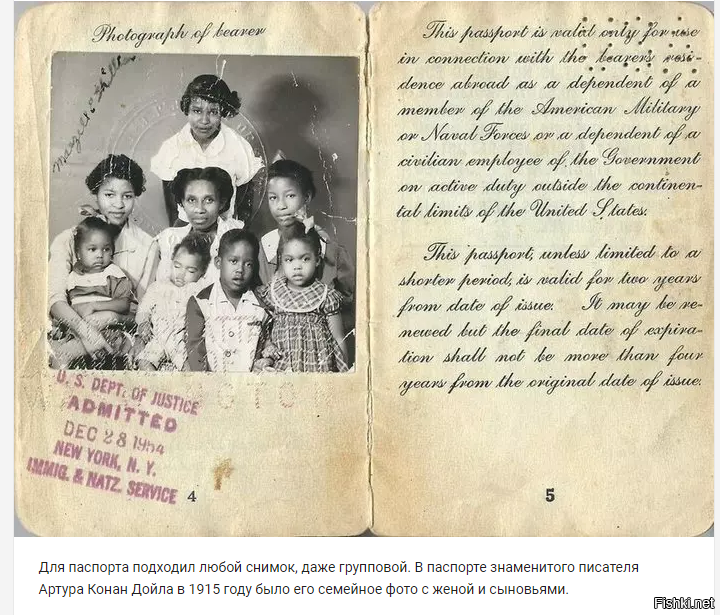 Photograph of bearer
U. S. DEPT. OF JUSTICE
ADMITTED
DEC 28 1954
NEW YORK, N. Y.
IMMIG. & NATZ. SERVICE
4
This passport is valid only for use
in connection with the bearers resi-
dence abroad as a dependent of a
member of the American Military
or Naval Forces or a dependent of a
civilian employee of the Government
on active duty outside the continen-
tal limits of the United States.
This passport, unless limited to a
shorter period, is valid for two years
from date of issue. It may be re-
newed but the final date of expira-
tion shall not be more than four
years from the original date of issue.
5
Для паспорта подходил любой снимок, даже групповой. В паспорте знаменитого писателя
Артура Конан Дойла в 1915 году было его семейное фото с женой и сыновьями.
Fishki.net